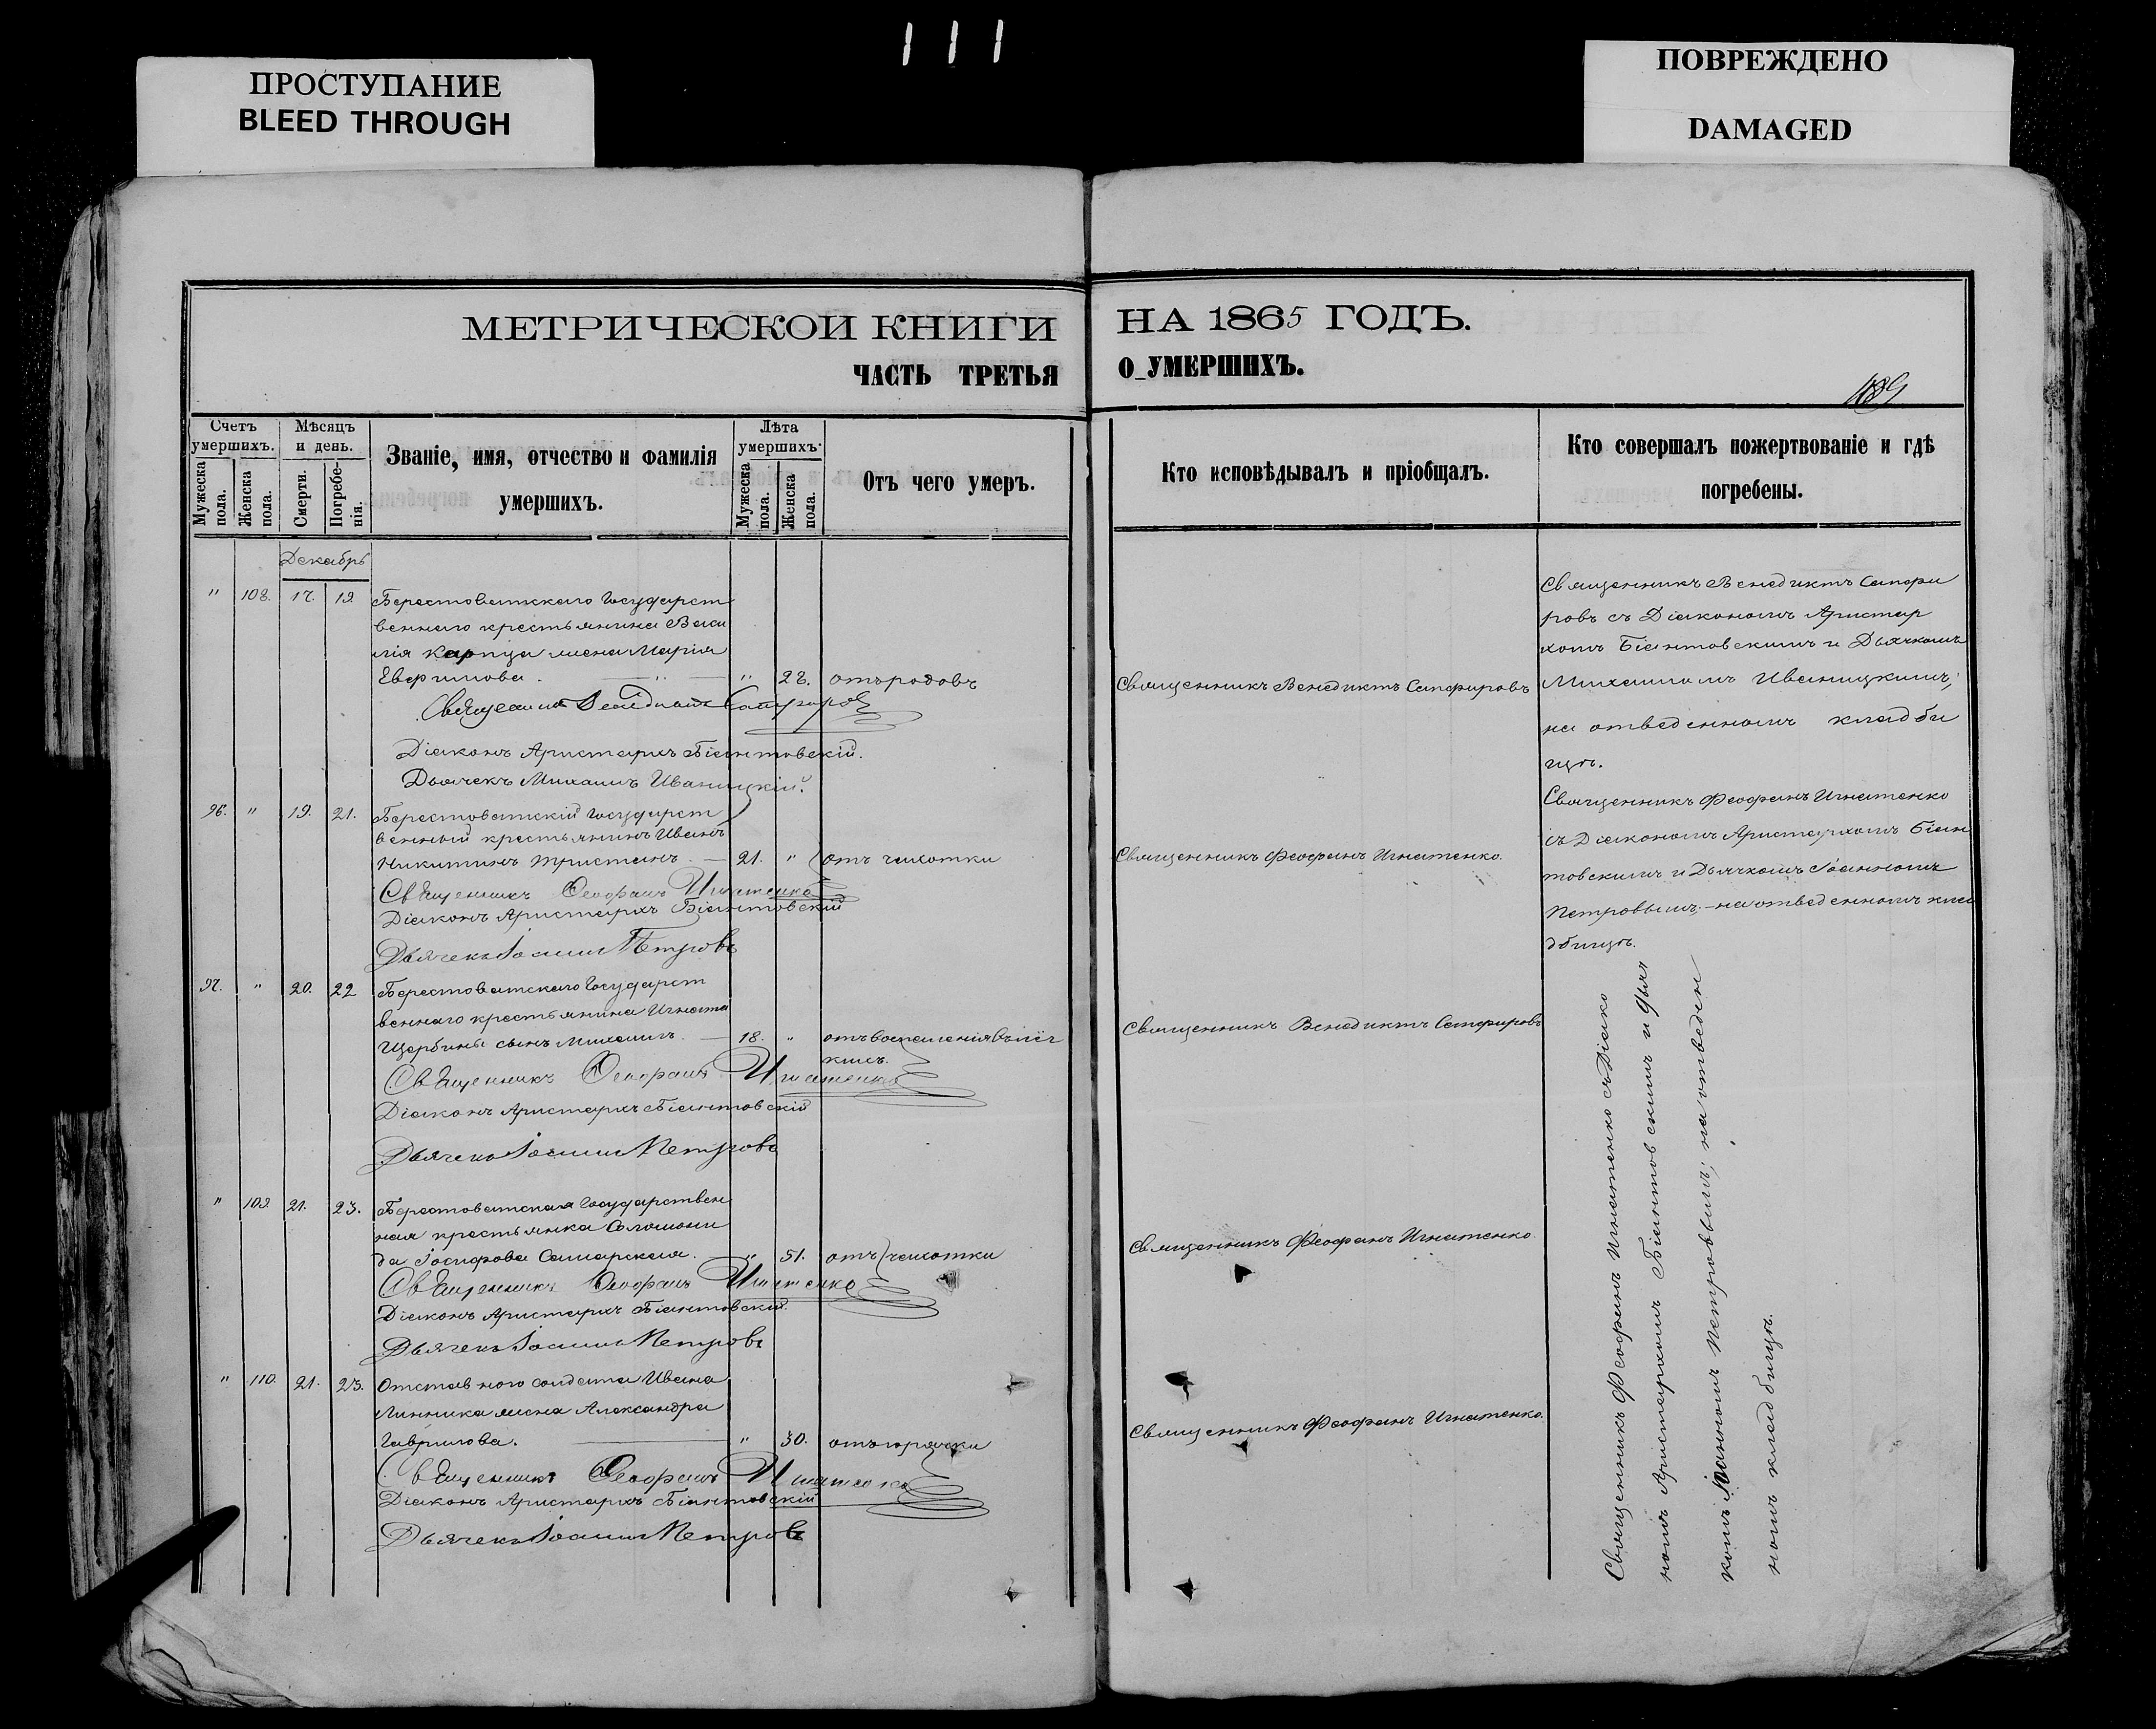 111
ПРОСТУПАНИЕ
BLEED THROUGH
ПОВРЕЖДЕНО
DAMAGED
МЕТРИЧЕСКОЙ КНИГИ НА 1865 ГОДЪ.
ЧАСТЬ ТРЕТЬЯ О УМЕРШИХЪ.
189
Счетъ умершихъ.
Мужеска пола.
Женска пола.
Мѣсяцъ и день.
Смерти.
Погребенія.
Званіе, имя, отчество и фамилія
умершихъ.
Лѣта умершихъ
Мужеска пола.
Женска пола.
Отъ чего умеръ.
Кто исповѣдывалъ и пріобщалъ.
Кто совершалъ пожертвованіе и гдѣ
погребены.
Декабрь
" 108. 17. 19. Берестоватскаго Государст
веннаго крестьянина Васи
лія Карпца жена Марія
Евфимова. " 28. отъ родовъ
Священникъ Венедиктъ Сапфировъ
Діаконъ Аристархъ Біянтовскій.
Дьячекъ Михаилъ Иваницкій.
Священникъ Венедиктъ Сапфировъ
Священникъ Венедиктъ Сапфи
ровъ съ Діакономъ Аристар
хомъ Біянтовскимъ и Дьячкомъ
Михаиломъ Иваницкимъ;
на отведенномъ кладби
щѣ.
96. " 19. 21. Берестоватскій Государст
венный крестьянинъ Иванъ
Никитинъ Тристанъ. — 21. " отъ чахотки
Священникъ Феофанъ Игнатенко
Діаконъ Аристархъ Біянтовскій
Дьячекъ Іоаннъ Петровъ
Священникъ Феофанъ Игнатенко.
Священникъ Феофанъ Игнатенко
съ Діакономъ Аристархомъ Біян
товскимъ и Дьячкомъ Іоанномъ
Петровымъ; — на отведенномъ кла
дбищѣ.
97. " 20. 22 Берестоватскаго Государст
веннаго крестьянина Игната
Щербины сынъ Михаилъ. — 18. " отъ воспаленія въ лёг
кихъ.
Священникъ Феофанъ Игнатенко
Діаконъ Аристархъ Біянтовскій
Дьячекъ Іоаннъ Петровъ
Священникъ Венедиктъ Сапфировъ
" 109. 21. 23. Берестоватская Государствен
ная крестьянка Соломони
да Іосифова Самарская. — " 51. отъ чахотки
Священникъ Феофанъ Игнатенко
Діаконъ Аристархъ Біянтовскій.
Дьячекъ Іоаннъ Петровъ
Священникъ Феофанъ Игнатенко.
" 110. 21. 23. Отставного солдата Ивана
Линника жена Александра
Гаврилова. — " 30. отъ горячки
Священникъ Феофанъ Игнатенко
Діаконъ Аристархъ Біянтовскій
Дьячекъ Іоаннъ Петровъ
Священникъ Феофанъ Игнатенко.
Священникъ Феофанъ Игнатенко съ Діако
номъ Аристархомъ Біянтовскимъ и Дьяч
комъ Іоанномъ Петровымъ; на отведен
номъ кладбищѣ.